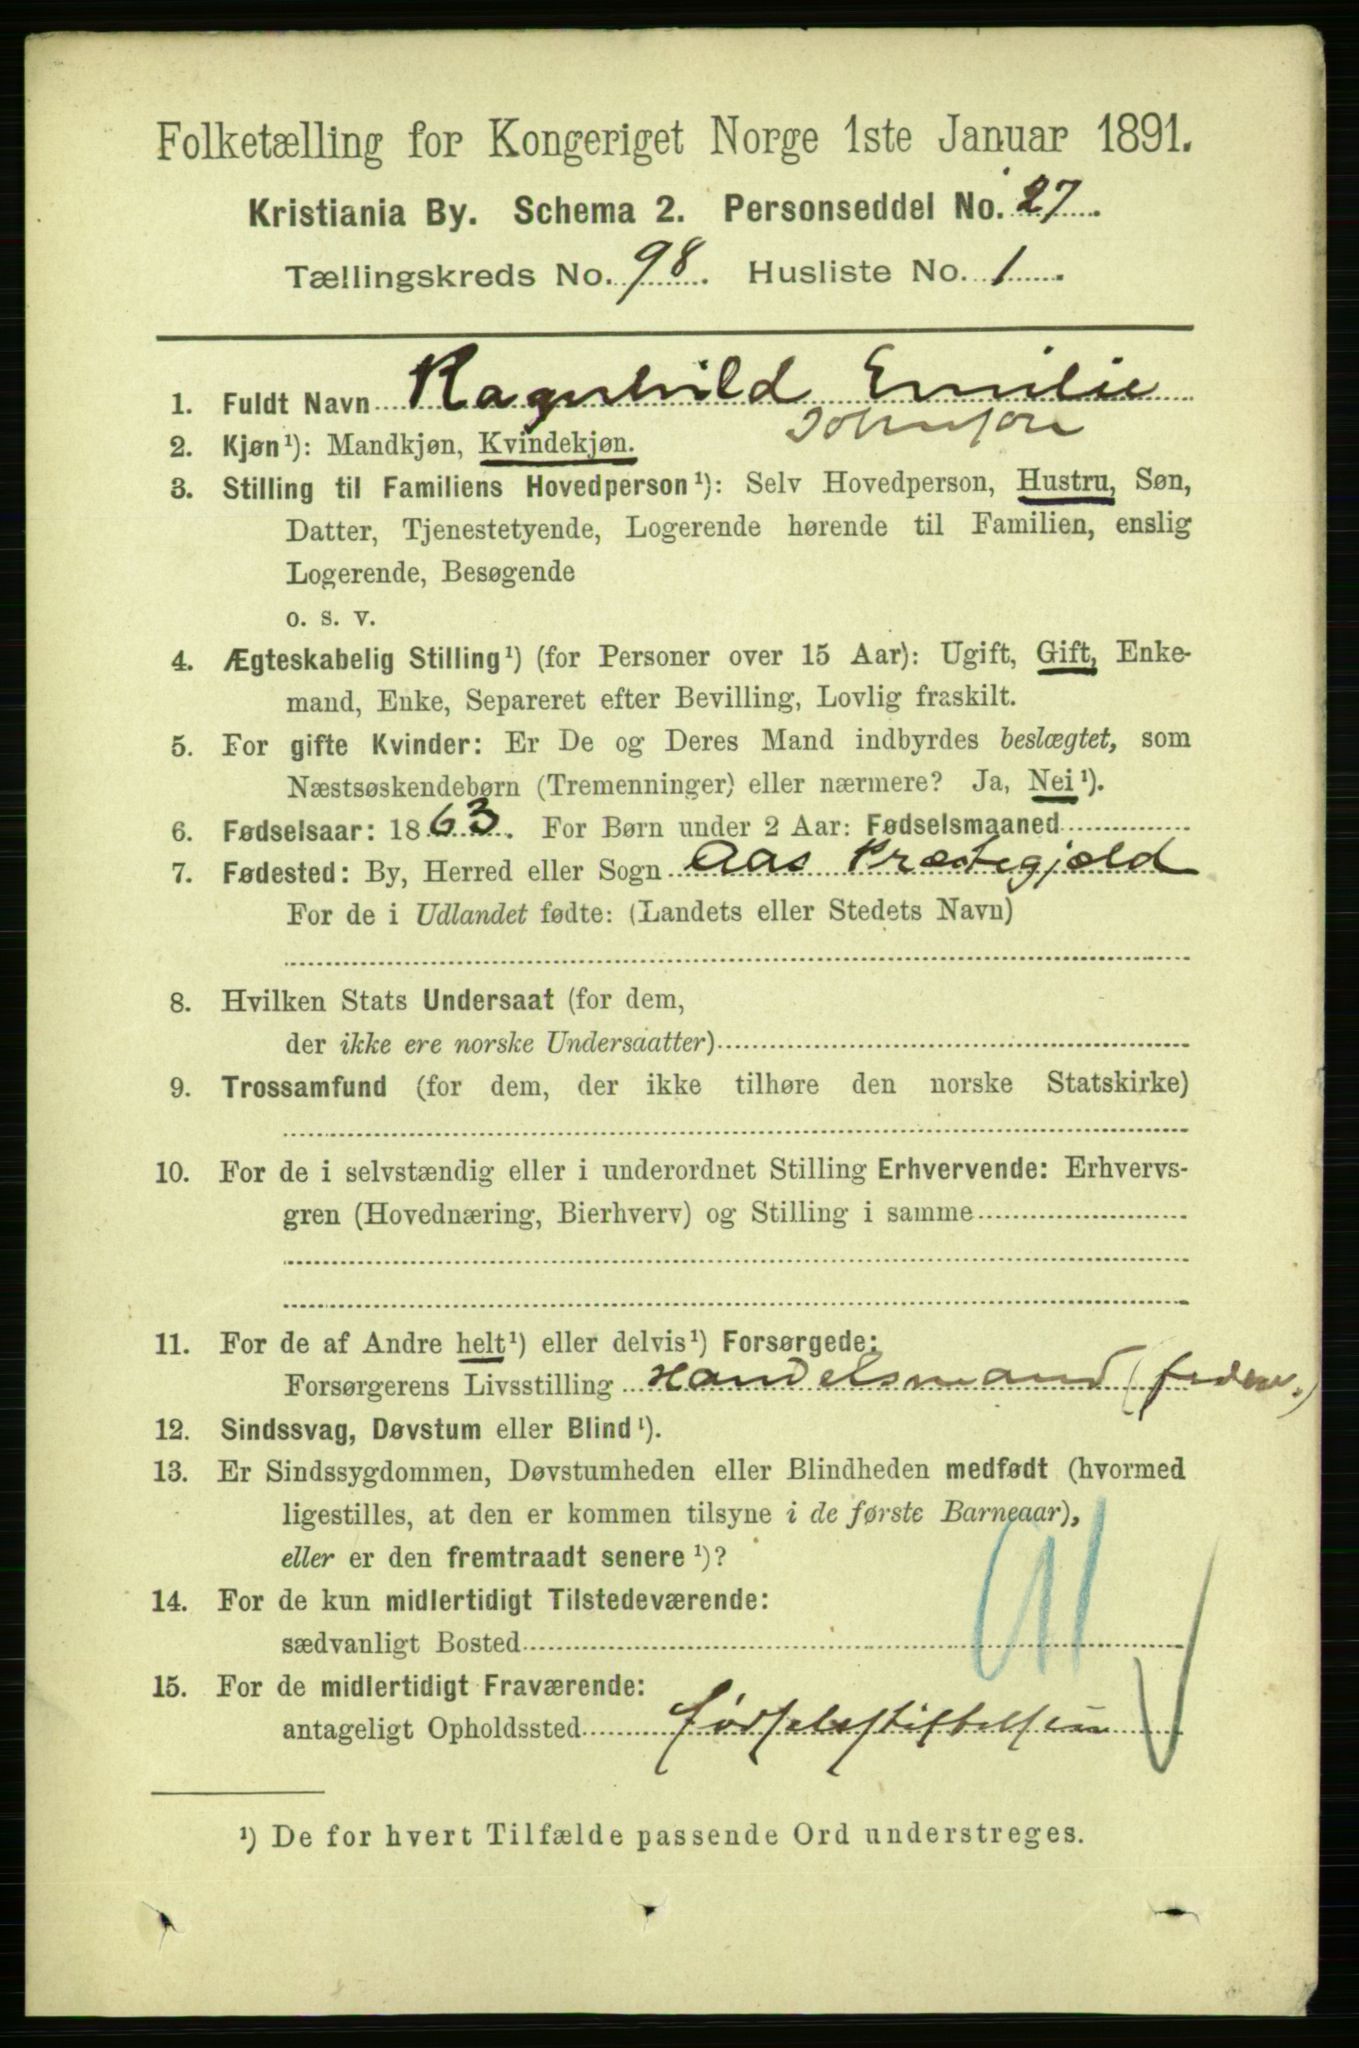 Folketælling for Kongeriget Norge 1ste Januar 1891.
Kristiania By. Schema 2. Personseddel No. 27.
Tællingskreds No. 98. Husliste No. 1.
1. Fuldt Navn Ragnhild Emilie
Johnson
2. Kjøn¹): Mandkjøn, Kvindekjøn.
3. Stilling til Familiens Hovedperson¹): Selv Hovedperson, Hustru, Søn,
Datter, Tjenestetyende, Logerende hørende til Familien, enslig
Logerende, Besøgende
o. s. v.
4. Ægteskabelig Stilling¹) (for Personer over 15 Aar): Ugift, Gift, Enke-
mand, Enke, Separeret efter Bevilling, Lovlig fraskilt.
5. For gifte Kvinder: Er De og Deres Mand indbyrdes beslægtet, som
Næstsøskendebørn (Tremenninger) eller nærmere? Ja, Nei¹).
6. Fødselsaar: 1863. For Børn under 2 Aar: Fødselsmaaned
7. Fødested: By, Herred eller Sogn Aas Præstegjæld
For de i Udlandet fødte: (Landets eller Stedets Navn)
8. Hvilken Stats Undersaat (for dem,
der ikke ere norske Undersaatter)
9. Trossamfund (for dem, der ikke tilhøre den norske Statskirke)
10. For de i selvstændig eller i underordnet Stilling Erhvervende: Erhvervs-
gren (Hovednæring, Bierhverv) og Stilling i samme
11. For de af Andre helt¹) eller delvis¹) Forsørgede:
Forsørgerens Livsstilling Handelsmand
12. Sindssvag, Døvstum eller Blind¹).
13. Er Sindssygdommen, Døvstumheden eller Blindheden medfødt (hvormed
ligestilles, at den er kommen tilsyne i de første Barneaar),
eller er den fremtraadt senere¹)?
14. For de kun midlertidigt Tilstedeværende:
sædvanligt Bosted
15. For de midlertidigt Fraværende:
antageligt Opholdssted Fødselsstiftelsen
¹) De for hvert Tilfælde passende Ord understreges.